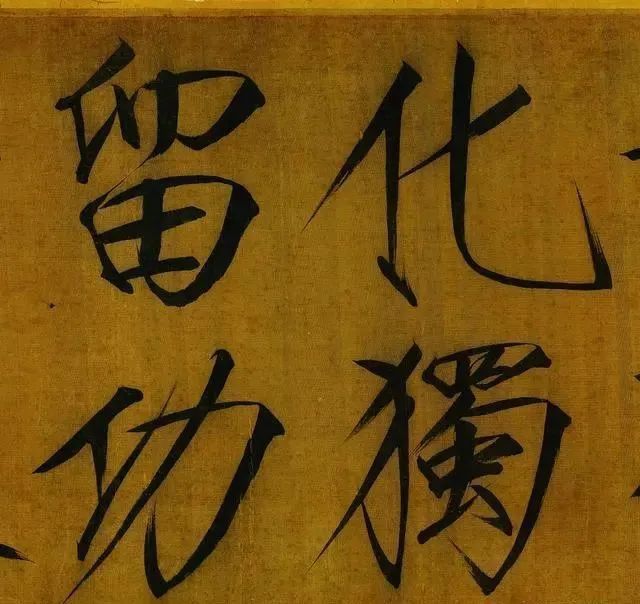 化獨
留功